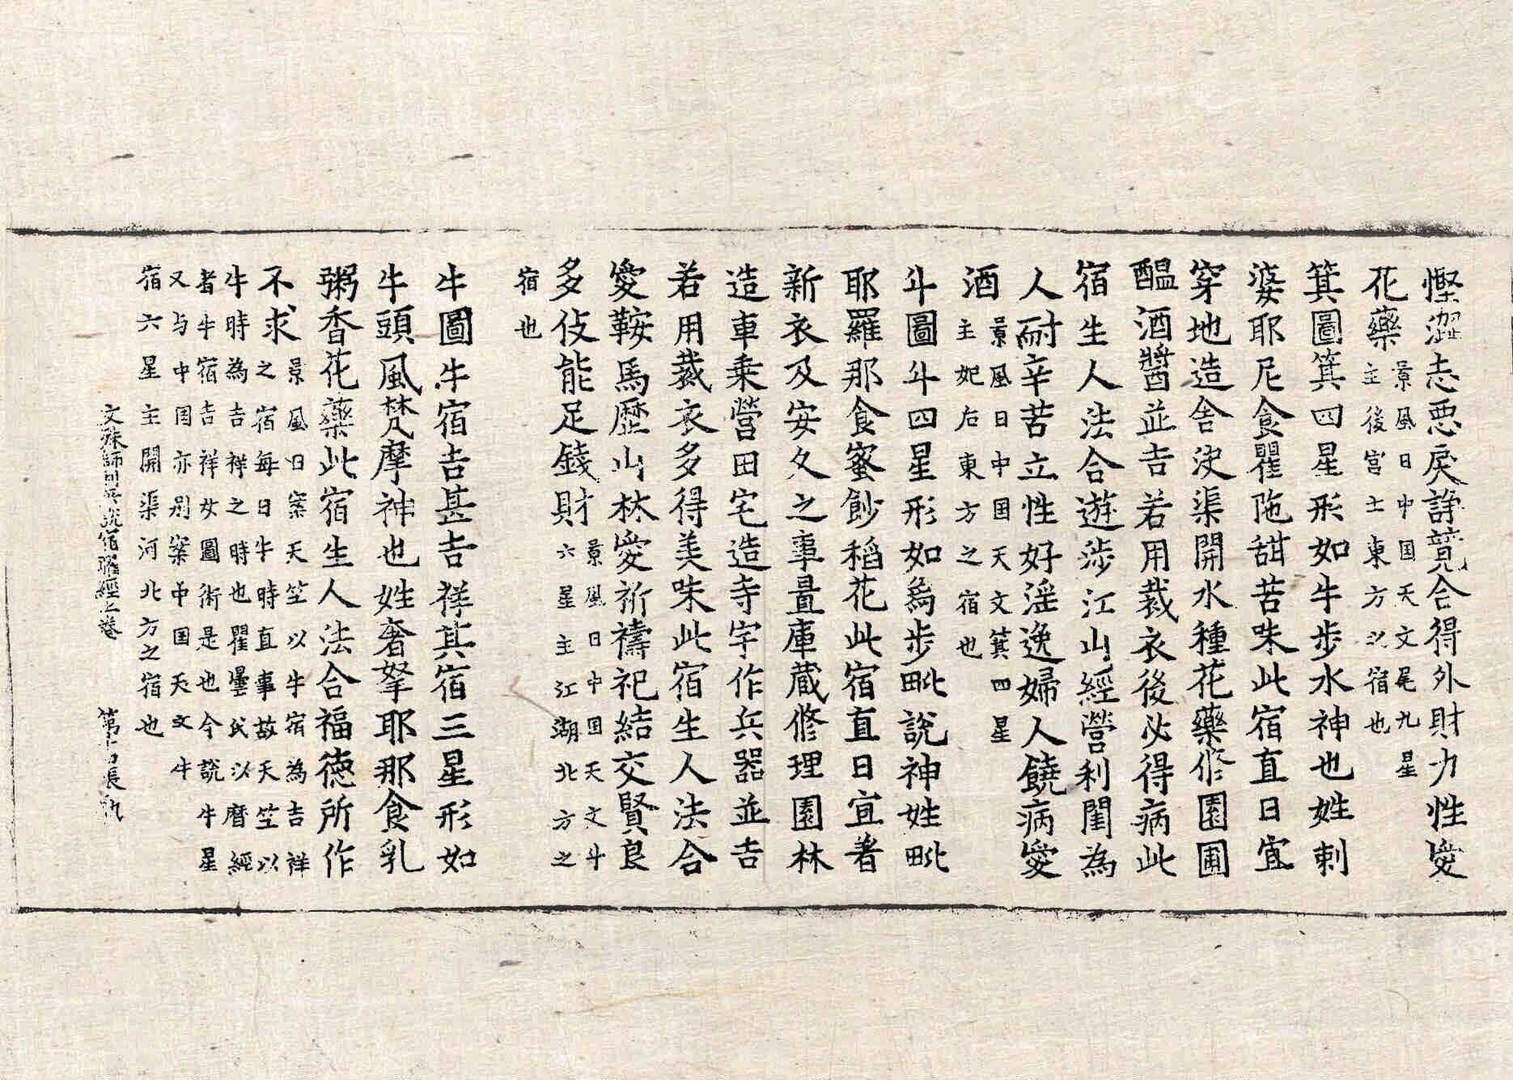 慳澁志悪戾諍競合得外財力性愛
花藥景風日中国天文尾九星
主後宮士東方之宿也
箕圖箕四星形如牛步水神也姓刺
婆耶尼食瞿陁甜苦味此宿直日宜
穿地造舍決渠開水種花藥修園圃
醖酒醬並吉若用裁衣後必得病此
宿生人法合遊涉江山經營利閏為
人耐辛苦立性好淫逸婦人饒病愛
酒景風日中国天文箕四星
主妃后東方之宿也
斗圖斗四星形如為步毗說神姓毗
耶羅那食蜜麨稻花此宿直日宜著
新衣及安久之事置庫蔵修理園林
造車乗營田宅造寺宇作兵器並吉
若用裁衣多得美味此宿生人法合
愛鞍馬歷山林愛祈禱祀結交賢良
多伎能足錢財景風日中国天文斗
六星主江湖北方之
宿也
牛圖牛宿吉甚吉祥其宿三星形如
牛頭風梵摩神也姓奢拏耶那食乳
粥香花藥此宿生人法合福德所作
不求景風曰案天竺以牛宿為吉祥
之宿每日牛時直事故天竺以
牛時為吉祥之時也瞿曇氏以曆經
者牛宿吉祥女圖術是也今說牛星
又与中国亦別案中国天文牛
宿六星主開渠河北方之宿也
文殊師利菩說宿曜經上卷 第十 張